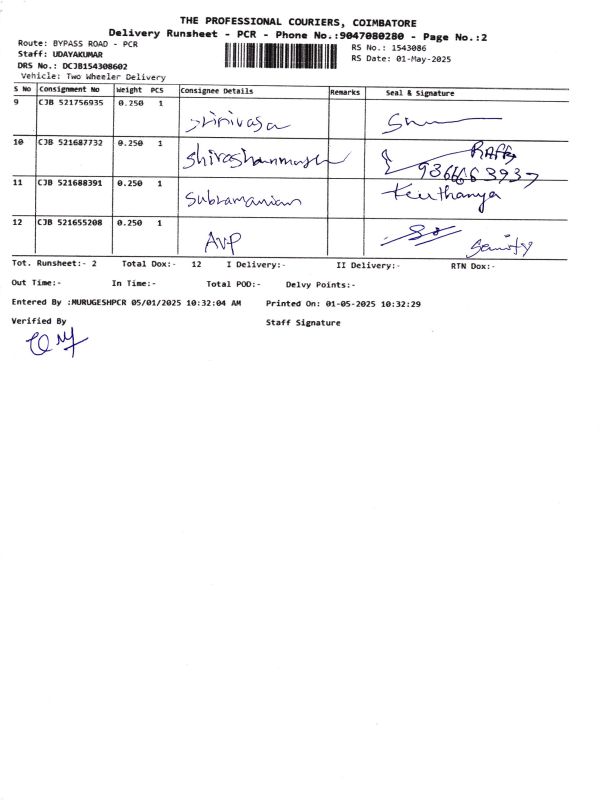 THE PROFESSIONAL COURIERS, COIMBATORE
Delivery Runsheet - PCR - Phone No.:9047080280 - Page No.:2
Route: BYPASS ROAD - PCR RS No.: 1543086
Staff: UDAYAKUMAR RS Date: 01-May-2025
DRS No.: DCJB154308602
Vehicle: Two Wheeler Delivery
S No Consignment No Weight PCS Consignee Details Remarks Seal & Signature
9 CJB 521756935 0.250 1 srinivasa
10 CJB 521687732 0.250 1 Raffy
9366663937
11 CJB 521688391 0.250 1 Subramanian Keerthanya
12 CJB 521655208 0.250 1 AVP
Tot. Runsheet:- 2 Total Dox:- 12 I Delivery:- II Delivery:- RTN Dox:-
Out Time:- In Time:- Total POD:- Delvy Points:-
Entered By :MURUGESHPCR 05/01/2025 10:32:04 AM Printed On: 01-05-2025 10:32:29
Verified By Staff Signature